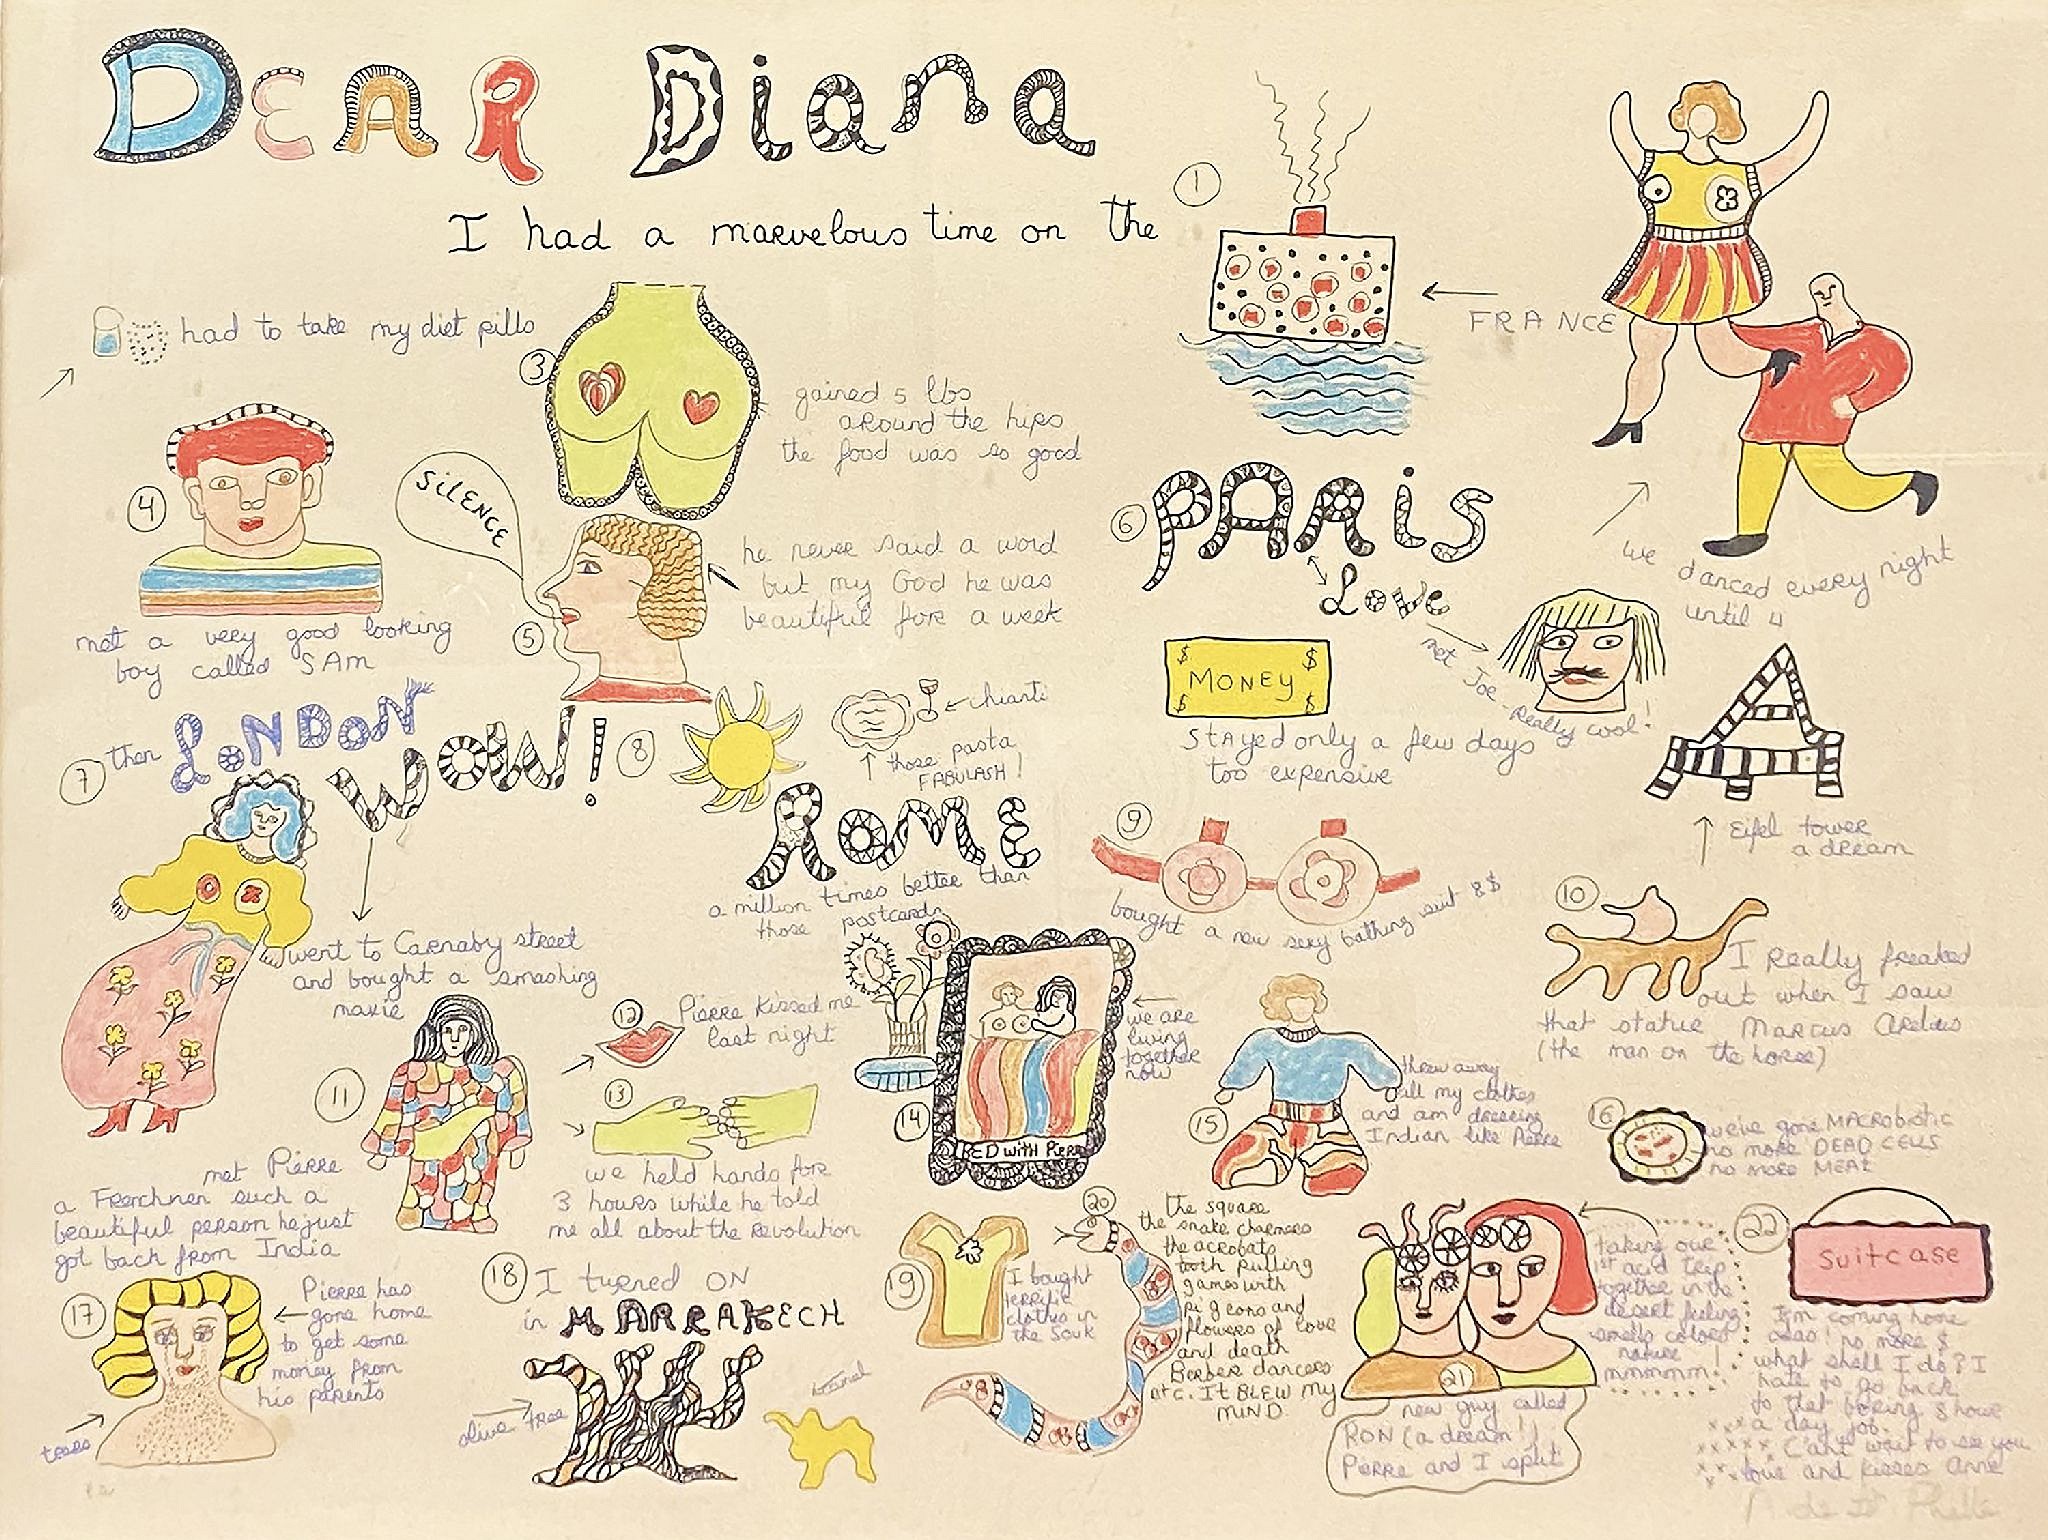 DEAR Diana
I had a marvelous time on the
1
FRANCE
we danced every night
until 4
had to take my diet pills
3
gained 5 lbs
around the hips
the food was so good
4
met a very good looking
boy called SAM
SILENCE
5
he never said a word
but my God he was
beautiful for a week
6
PARIS
Love
met Joe - really cool!
MONEY
$ $
$ $
Stayed only a few days
too expensive
Eifel tower
a dream
7
then LONDON
WOW!
went to Carnaby street
and bought a smashing
maxie
8
chianti
those pasta
FABULASH!
ROME
a million times better than
those postcards
9
bought a new sexy bathing suit 8$
10
I Really freaked
out when I saw
that statue Marcus Arelius
(the man on the horse)
11
met Pierre
a Frenchmen such a
beautiful person he just
got back from India
12
Pierre kissed me
last night
13
we held hands for
3 hours while he told
me all about the Revolution
14
we are
living
together
now
BED with PIERRE
15
threw away
all my clothes
and am dressing
Indian like Pierre
16
we've gone MACROBIOTIC
no more DEAD CELLS
no more MEAT
17
Pierre has
gone home
to get some
money from
his parents
tears
18
I turned ON
in MARRAKECH
olive tree
camel
19
I bought
terrific
clothes in
the Souk
20
the square
the snake charmers
the acrobats
tooth pulling
games with
pigeons and
flowers of love
and death
Berber dancers
etc. It BLEW my
MIND
21
new guy called
RON (a dream!)
Pierre and I split
taking our
1st acid trip
together in the
desert feeling
smells colors
nature !
mmmmm!
22
suitcase
I'm coming home
alas! no more $
what shall I do? I
hate to go back
to that boring 8 hour
a day job.
Can't wait to see you
love and kisses Anne